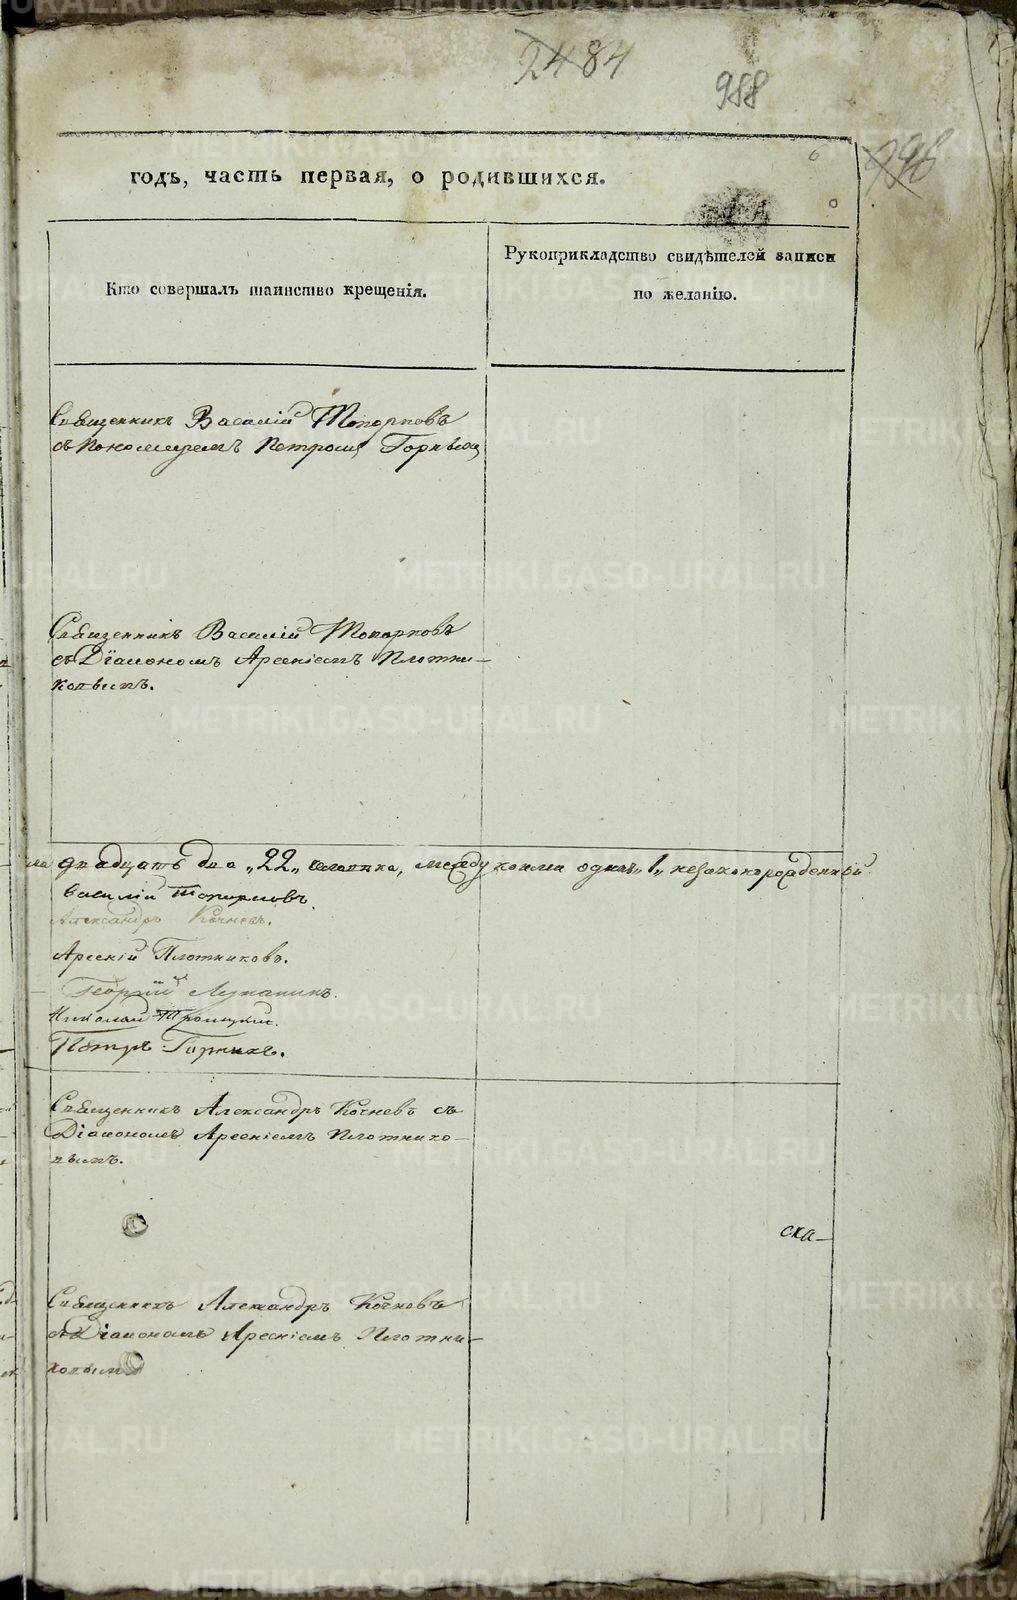 2484
988
996
годъ, часть первая, о родившихся.
Кто совершалъ таинство крещенія.
Рукоприкладство свидѣтелей записи
по желанію.
Священникъ Василій Топорковъ
съ Пономаремъ Петромъ
Священникъ Василій Топорковъ
съ Діакономъ Арсеніемъ Плотни-
ковымъ.
двадцать два „22„ человѣка, между коими одинъ „1„ незаконорожденный
Василій Топорковъ.
Александръ Кочневъ.
Арсеній Плотниковъ.
Георгій
Николай Троицкій.
Петръ
Священникъ Александръ Кочневъ съ
Діакономъ Арсеніемъ Плотнико-
вымъ.
ска-
Священникъ Александръ Кочневъ
съ Діакономъ Арсеніемъ Плотни-
ковым
METRIKI.GASO-URAL.RU